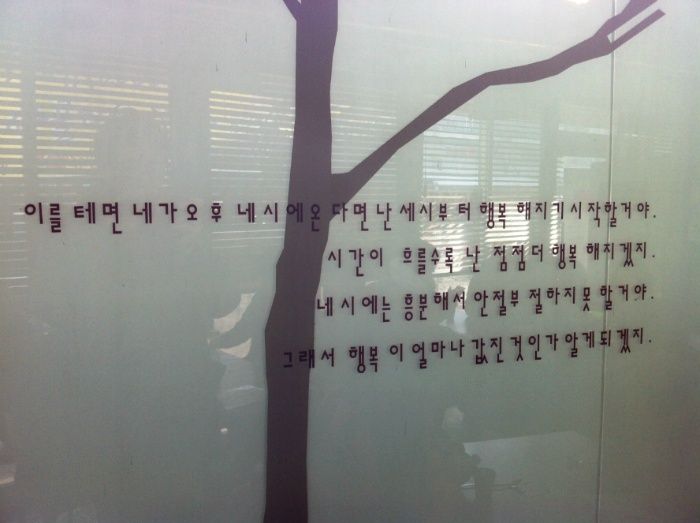 이를테면 네가 오후 네시에 온다면 난 세시부터 행복해지기 시작할거야.
시간이 흐를수록 난 점점 더 행복해지겠지.
네시에는 흥분해서 안절부절하지 못할거야.
그래서 행복이 얼마나 값진 것인가 알게 되겠지.